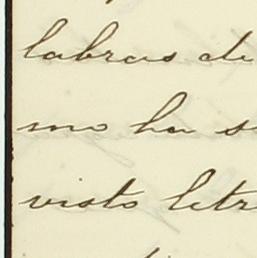 labras de
mo ha s
visto letr